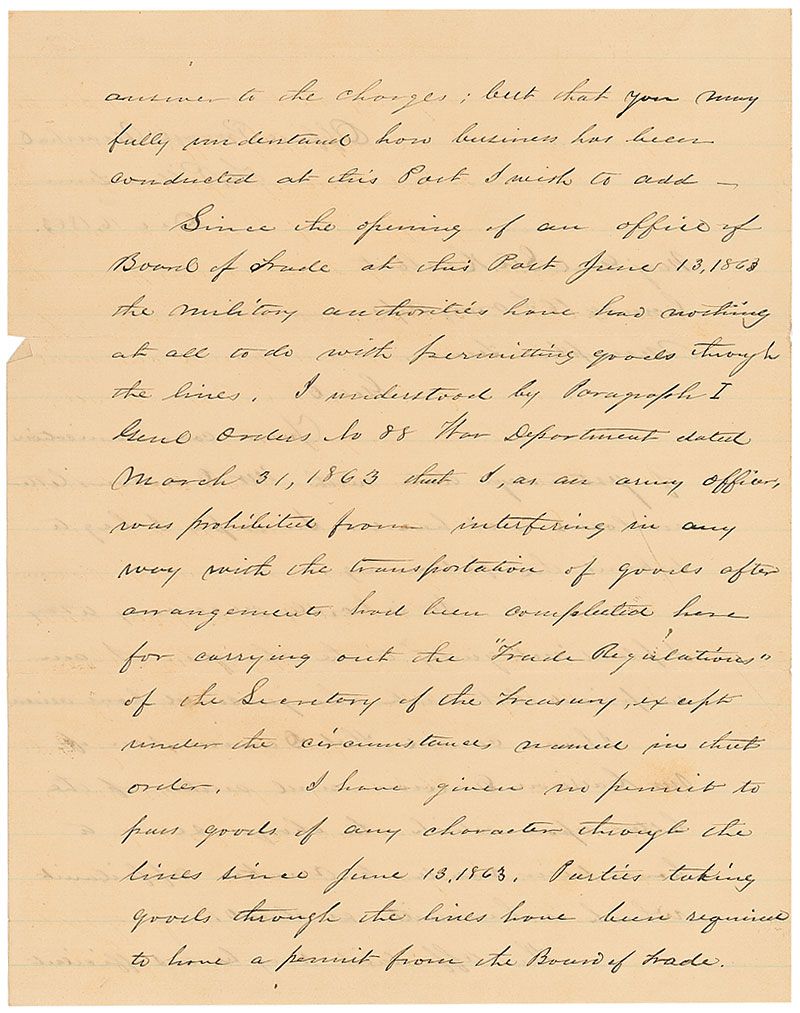 answer to the charges; but that you may
fully understand how business has been
conducted at this Post I wish to add —
Since the opening of an office of
Board of Trade at this Post June 13, 1863
the military authorities have had nothing
at all to do with permitting goods through
the lines. I understood by Paragraph I
Genl Orders No 88 War Department dated
March 31, 1863 that I, as an army officer,
was prohibited from interfering in any
way with the transportation of goods after
arrangements had been completed here
for carrying out the "Trade Regulations"
of the Secretary of the Treasury, except
under the circumstances named in that
order. I have given no permit to
pass goods of any character through the
lines since June 13, 1863. Parties taking
goods through the lines have been required
to have a permit from the Board of Trade.